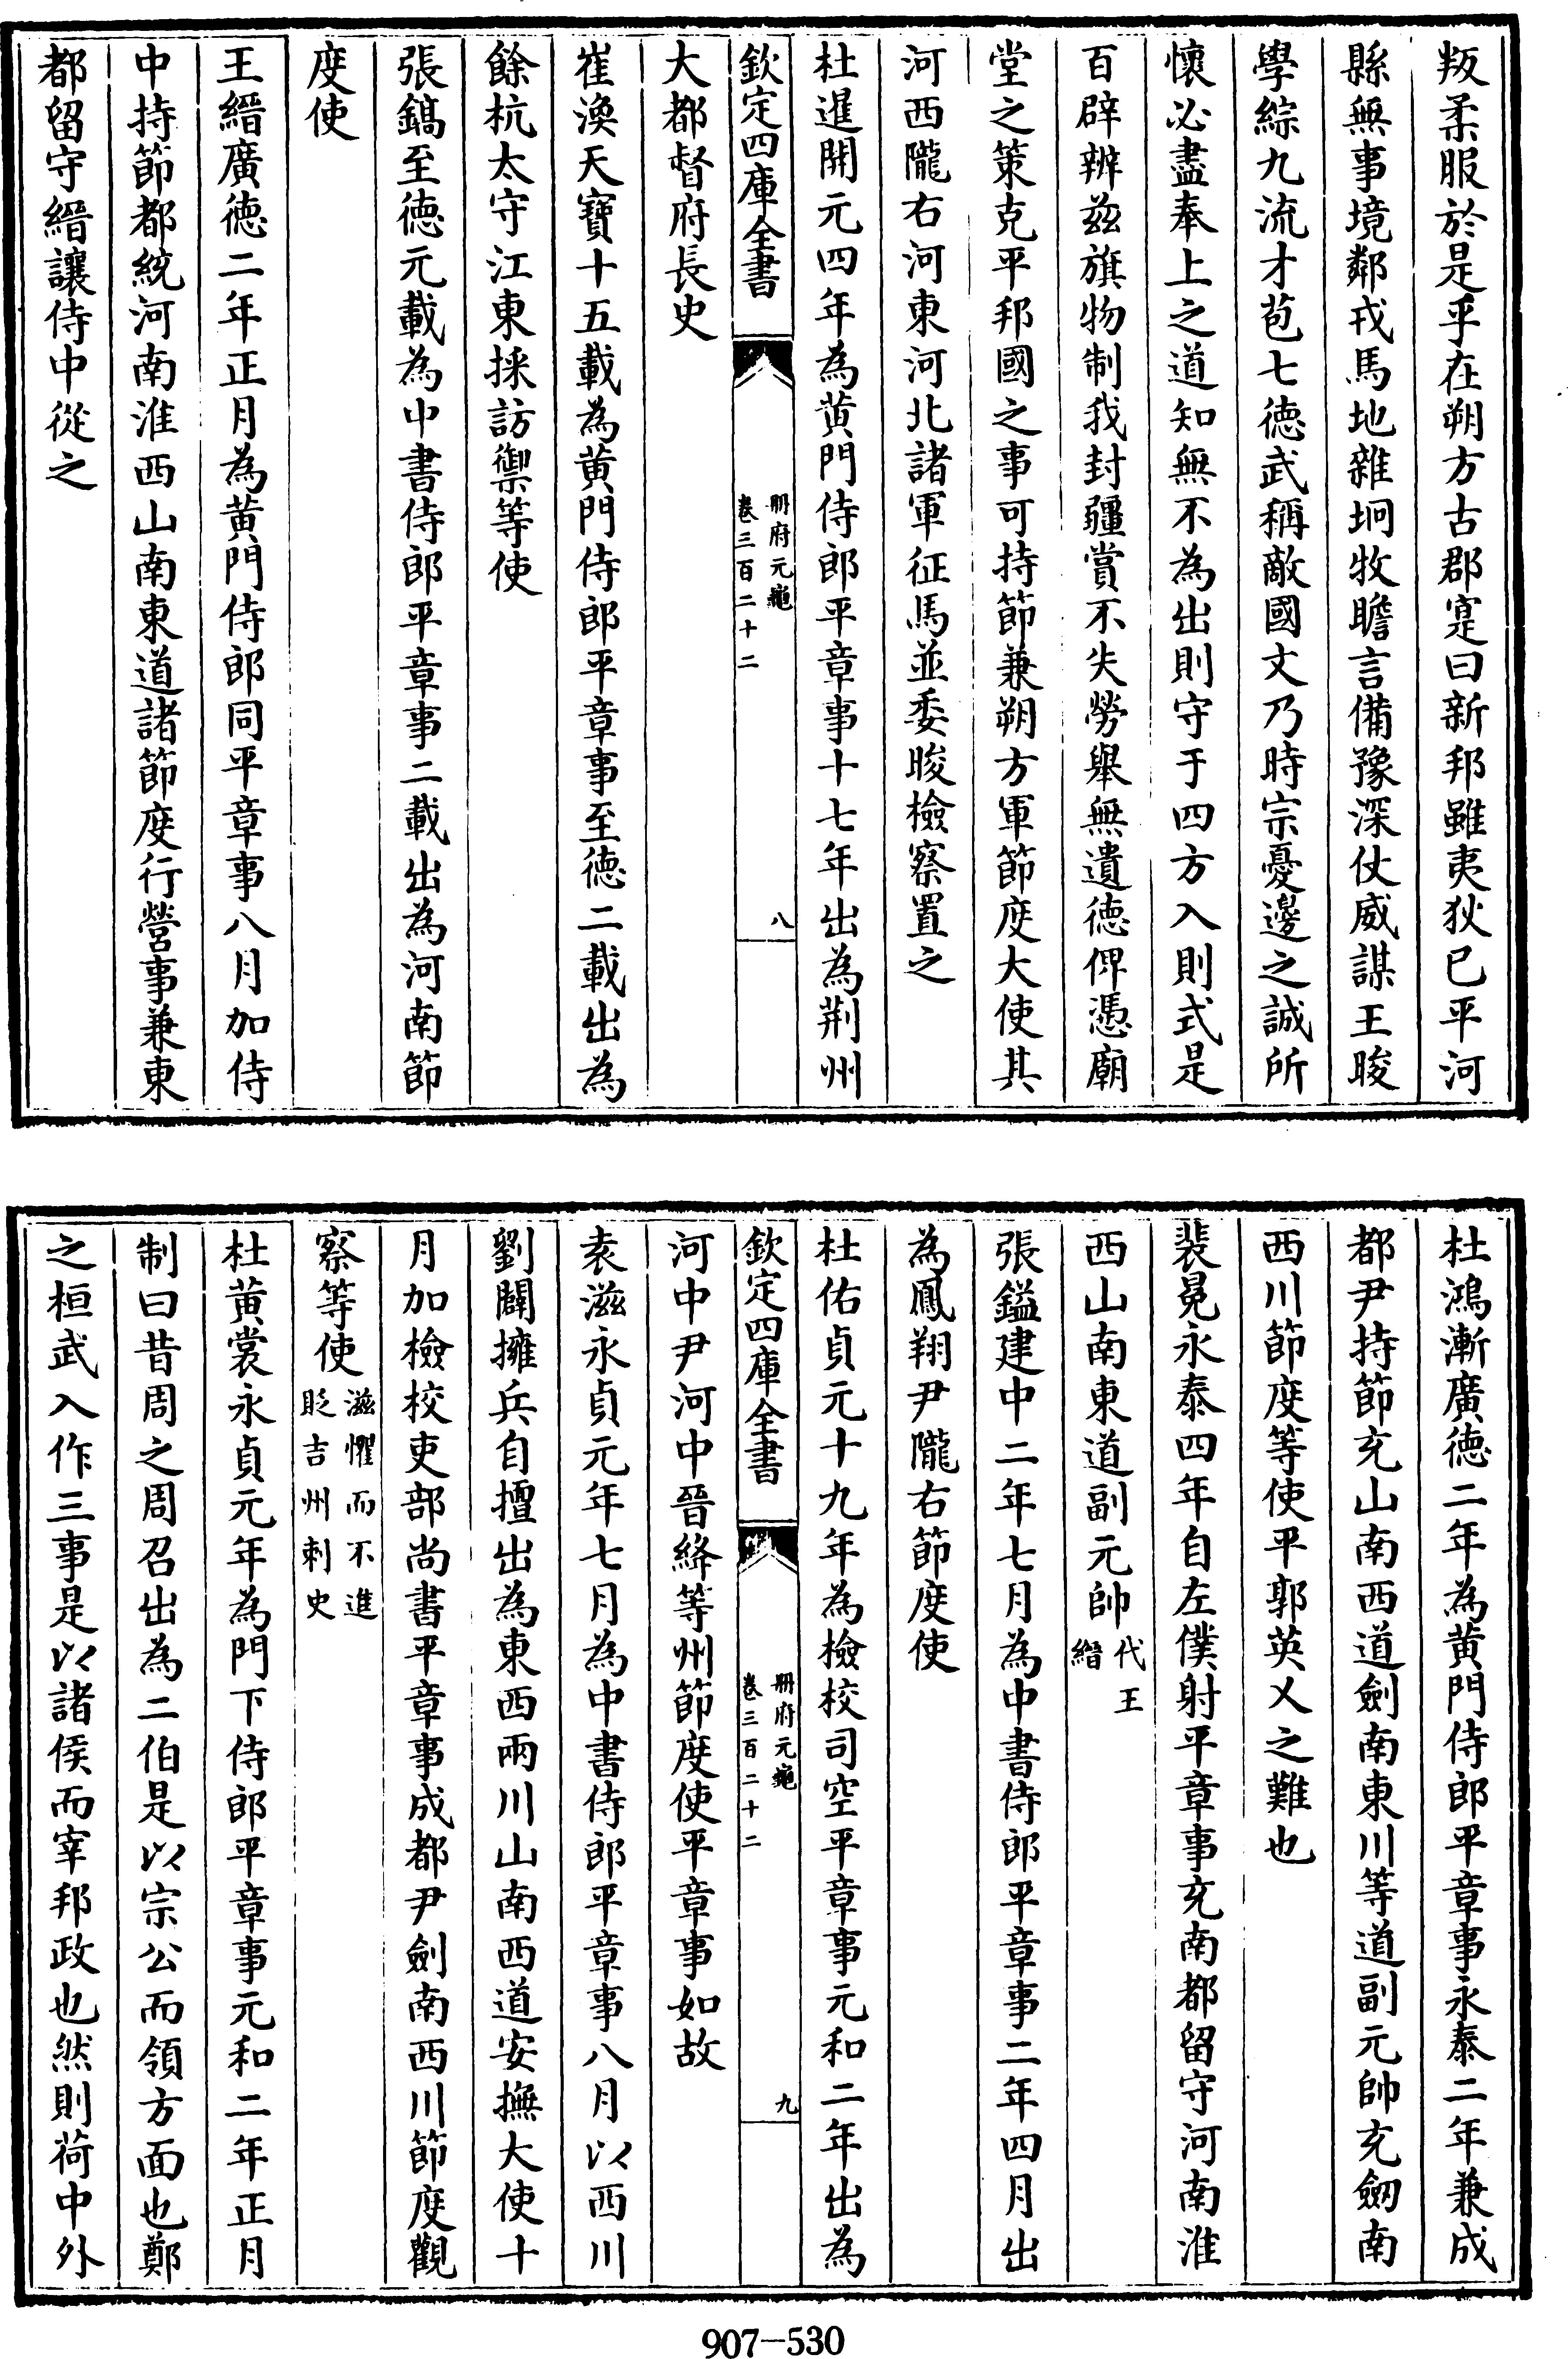 叛柔服於是乎在朔方古郡寔曰新邦雖夷狄已平河
縣無事境鄰戎馬地雜坰牧瞻言備豫深仗威謀王晙
學綜九流才苞七德武稱敵國文乃時宗憂邊之誠所
懷必盡奉上之道知無不為出則守于四方入則式是
百辟辨兹旗物制我封疆賞不失勞舉無遺德俾憑廟
堂之策克平邦國之事可持節兼朔方軍節度大使其
河西隴右河東河北諸軍征馬並委晙檢察置之
杜暹開元四年為黄門侍郎平章事十七年出為荆州
欽定四庫全書
册府元龜
卷三百二十二
八
大都督府長史
崔渙天寶十五載為黄門侍郎平章事至德二載出為
餘杭太守江東採訪禦等使
張鎬至德元載為中書侍郎平章事二載出為河南節
度使
王縉廣德二年正月為黄門侍郎同平章事八月加侍
中持節都統河南淮西山南東道諸節度行營事兼東
都留守縉讓侍中從之
杜鴻漸廣德二年為黄門侍郎平章事永泰二年兼成
都尹持節充山南西道劍南東川等道副元帥充劒南
西川節度等使平郭英乂之難也
裴冕永泰四年自左僕射平章事充南都留守河南淮
西山南東道副元帥代王縉
張鎰建中二年七月為中書侍郎平章事二年四月出
為鳳翔尹隴右節度使
杜佑貞元十九年為檢校司空平章事元和二年出為
欽定四庫全書
册府元龜
卷三百二十二
九
河中尹河中晉絳等州節度使平章事如故
袁滋永貞元年七月為中書侍郎平章事八月以西川
劉闢擁兵自擅出為東西兩川山南西道安撫大使十
月加檢校吏部尚書平章事成都尹劍南西川節度觀
察等使滋懼而不進貶吉州刺史
杜黄裳永貞元年為門下侍郎平章事元和二年正月
制曰昔周之周召出為二伯是以宗公而領方面也鄭
之桓武入作三事是以諸侯而宰邦政也然則荷中外
907—530